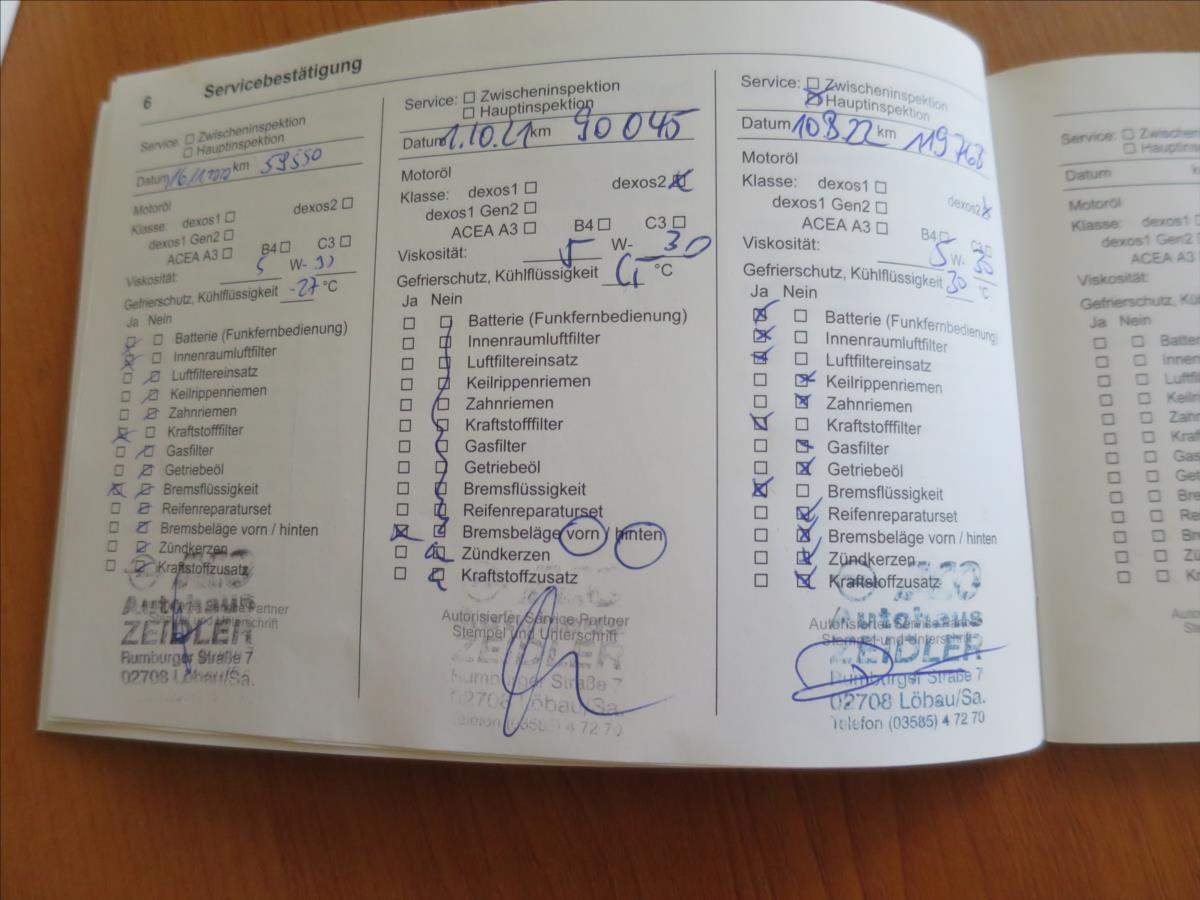 6 Servicebestätigung
Service: Zwischeninspektion
Hauptinspektion
Datum km 59550
Motoröl
Klasse: dexos1 dexos2
dexos1 Gen2
ACEA A3 B4 C3
Viskosität: 5 W-
Gefrierschutz, Kühlflüssigkeit -27 °C
Ja Nein
Batterie (Funkfernbedienung)
Innenraumluftfilter
Luftfiltereinsatz
Keilrippenriemen
Zahnriemen
Kraftstofffilter
Gasfilter
Getriebeöl
Bremsflüssigkeit
Reifenreparaturset
Bremsbeläge vorn / hinten
Zündkerzen
Kraftstoffzusatz
Autohaus
ZEIDLER
Rumburger Straße 7
02708 Löbau/Sa.
Service: Zwischeninspektion
Hauptinspektion
Datum 1.10.21 km 90045
Motoröl
Klasse: dexos1 dexos2
dexos1 Gen2
ACEA A3 B4 C3
Viskosität: 5 W- 30
Gefrierschutz, Kühlflüssigkeit °C
Ja Nein
Batterie (Funkfernbedienung)
Innenraumluftfilter
Luftfiltereinsatz
Keilrippenriemen
Zahnriemen
Kraftstofffilter
Gasfilter
Getriebeöl
Bremsflüssigkeit
Reifenreparaturset
Bremsbeläge vorn / hinten
Zündkerzen
Kraftstoffzusatz
Autorisierter Service Partner
Stempel und Unterschrift
ZEIDLER
Rumburger Straße 7
02708 Löbau/Sa.
Telefon (03585) 4 72 70
Service: Zwischeninspektion
Hauptinspektion
Datum 10.8.22 km 119768
Motoröl
Klasse: dexos1 dexos2
dexos1 Gen2
ACEA A3 B4 C3
Viskosität: 5 W- 30
Gefrierschutz, Kühlflüssigkeit 30 °C
Ja Nein
Batterie (Funkfernbedienung)
Innenraumluftfilter
Luftfiltereinsatz
Keilrippenriemen
Zahnriemen
Kraftstofffilter
Gasfilter
Getriebeöl
Bremsflüssigkeit
Reifenreparaturset
Bremsbeläge vorn / hinten
Zündkerzen
Kraftstoffzusatz
Autohaus
ZEIDLER
Rumburger Straße 7
02708 Löbau/Sa.
Telefon (03585) 4 72 70
Service:
Datum
Motoröl
Klasse: dexos1
dexos1 G
ACEA A3
Viskosität:
Gefrierschutz, K
Ja Nein